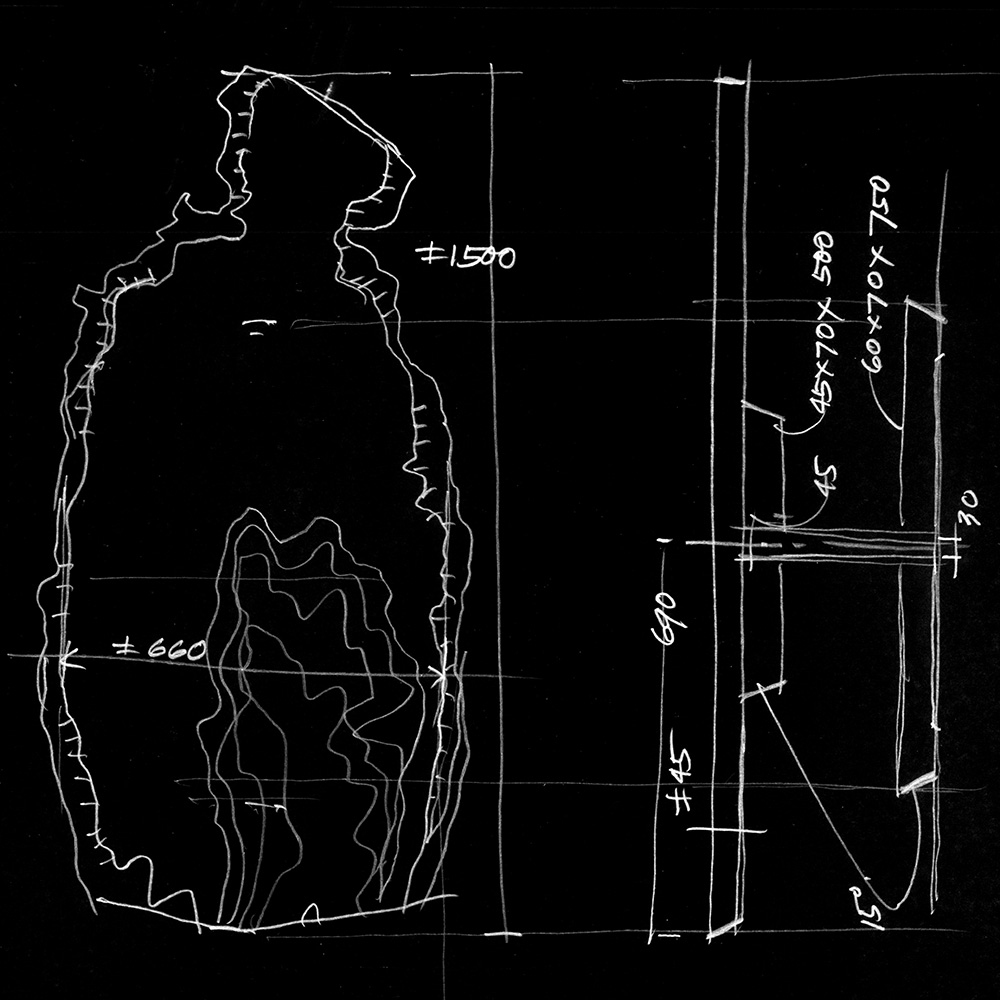 ±1500
± 660
45x70x 500
60x70x750
45
30
690
±45
15°